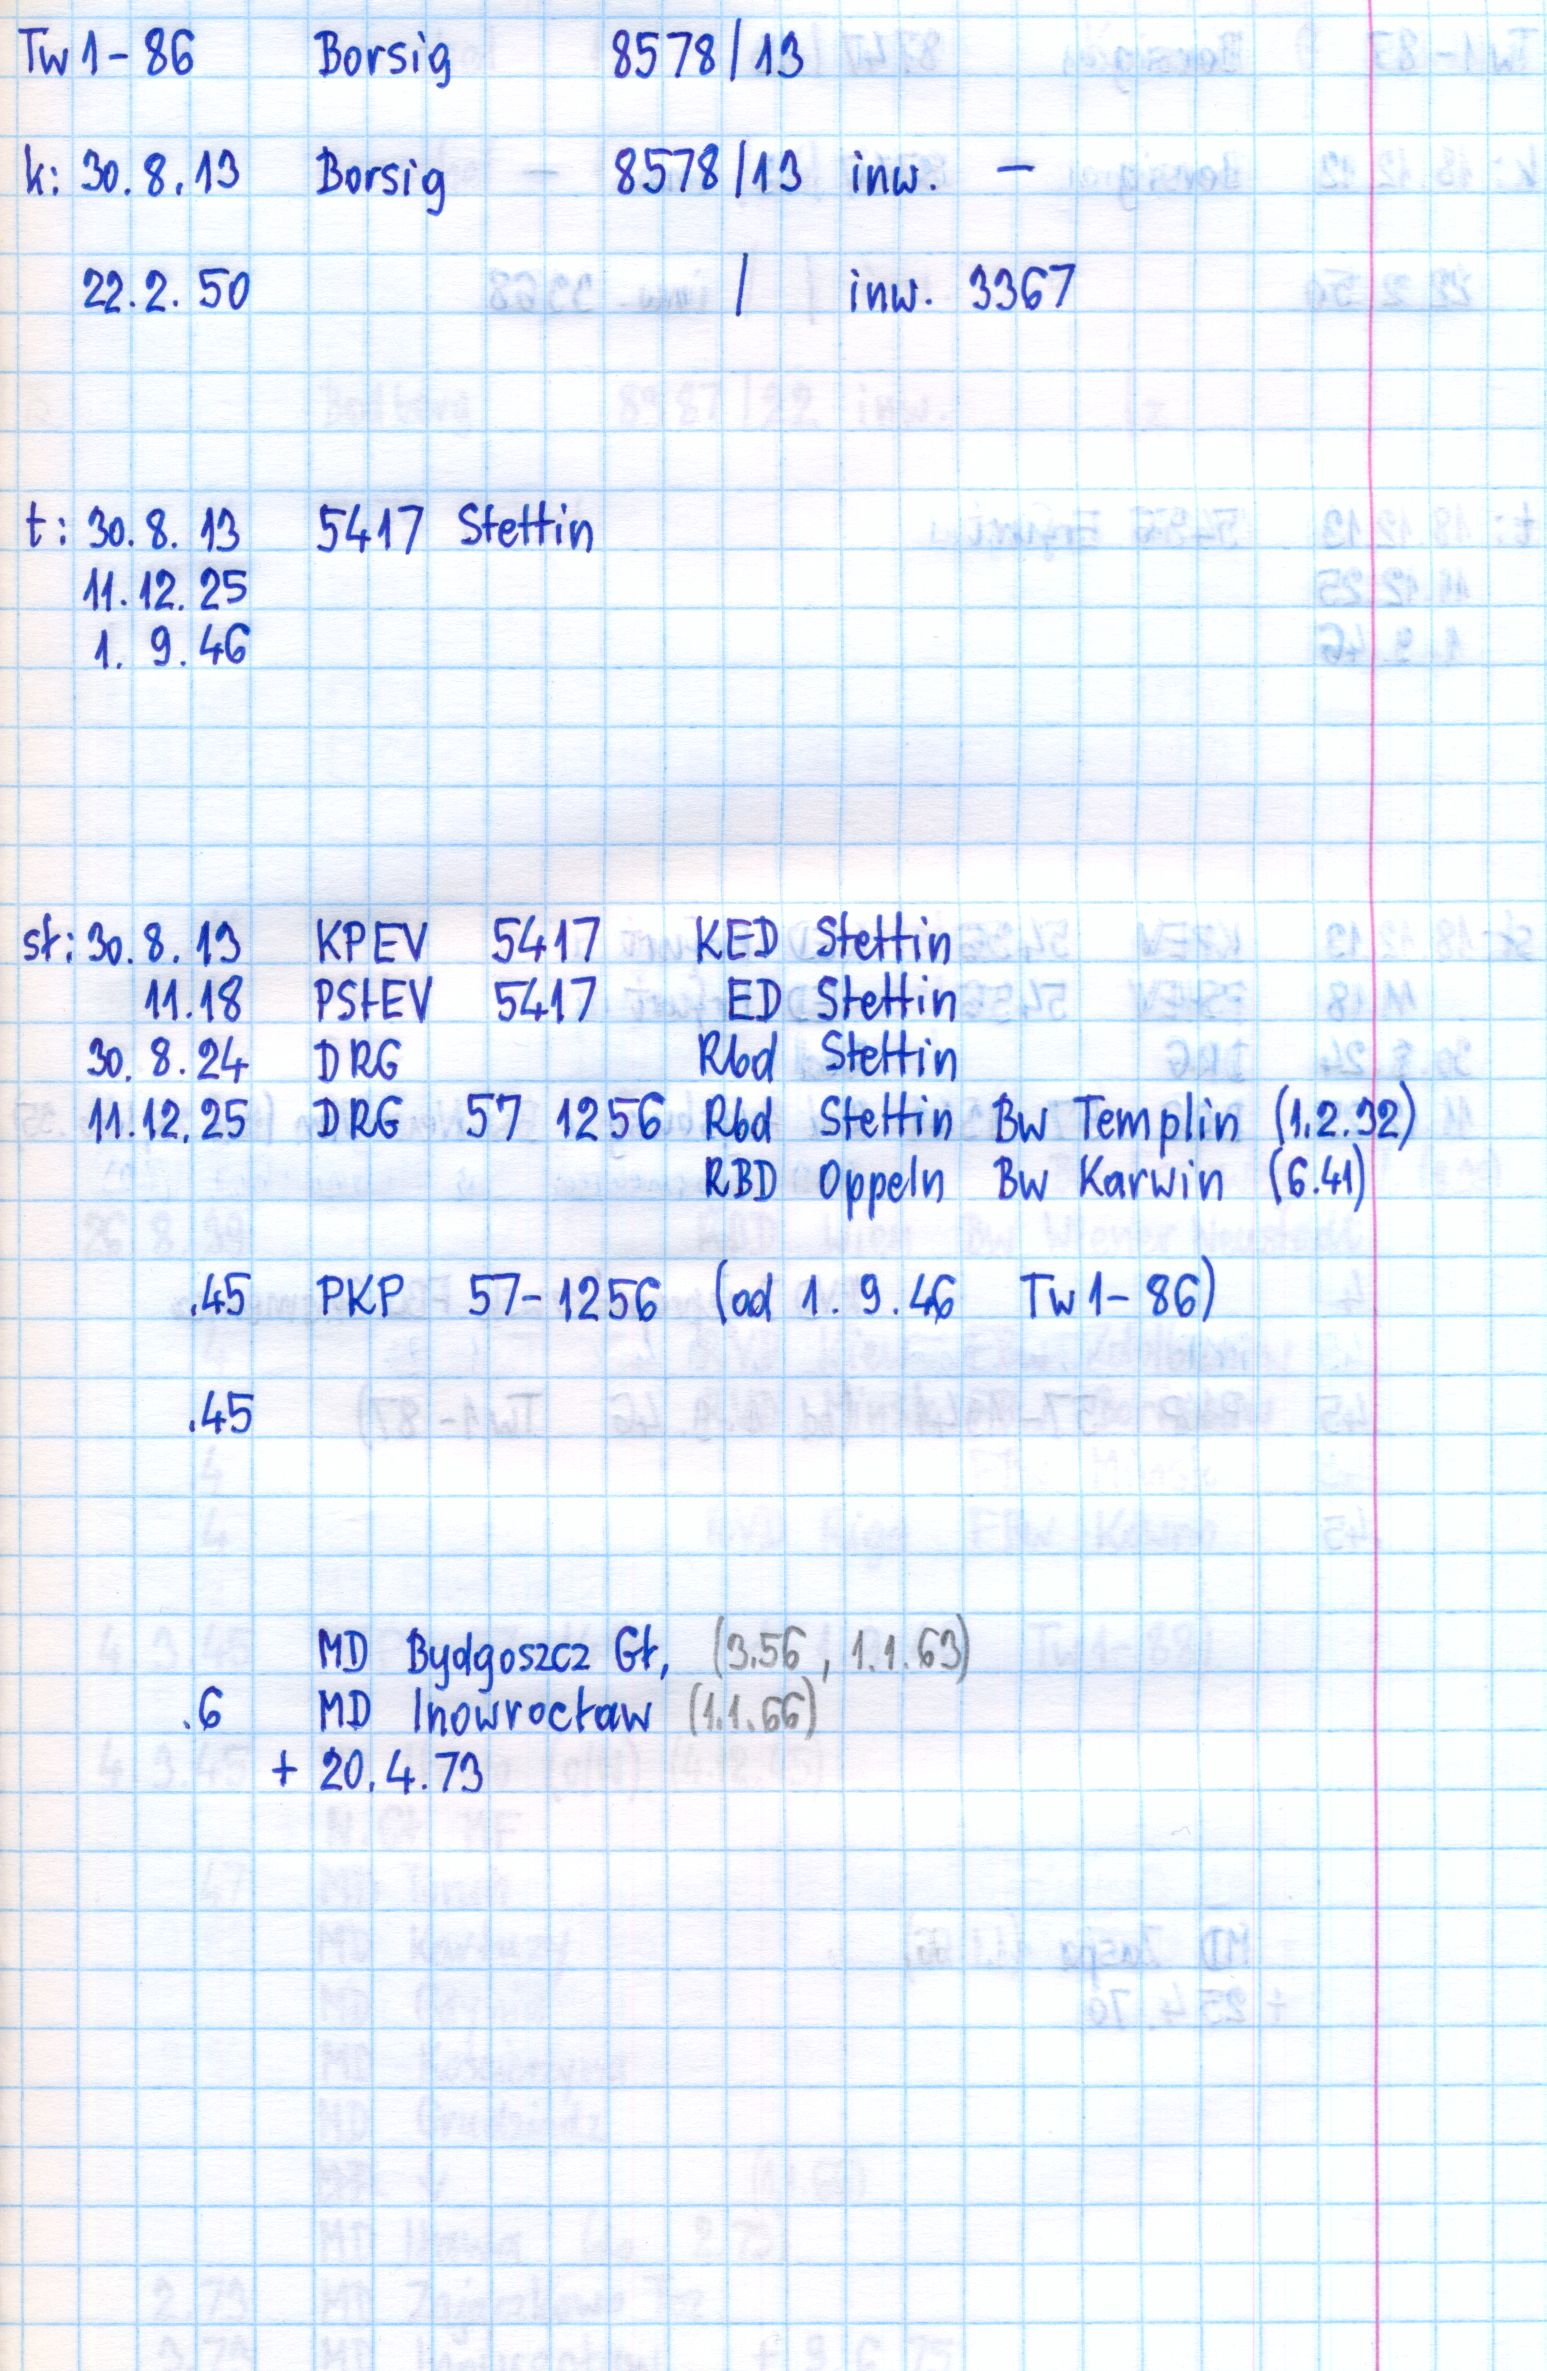 Tw1-86 Borsig 8578/13
k: 30.8.13 Borsig 8578/13 inw. -
22.2.50 / inw. 3367
t: 30.8.13 5417 Stettin
11.12.25
1.9.46
st: 30.8.13 KPEV 5417 KED Stettin
11.18 PStEV 5417 ED Stettin
30.8.24 DRG Rbd Stettin
11.12.25 DRG 57 1256 Rbd Stettin Bw Templin (1.2.32)
RBD Oppeln Bw Karwin (6.41)
.45 PKP 57-1256 (od 1.9.46 Tw1-86)
.45
MD Bydgoszcz Gł, (3.56, 1.1.63)
.6 MD Inowrocław (1.1.66)
+ 20.4.73